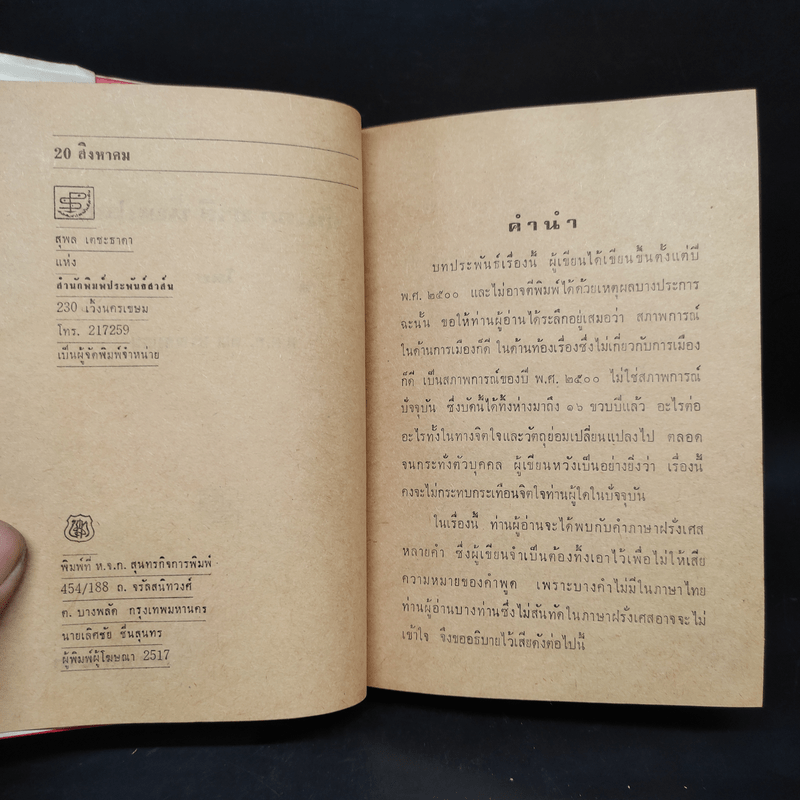 20 สิงหาคม
สุพล เตชะธาดา
แห่ง
สำนักพิมพ์ประพันธ์สาส์น
230 เวิ้งนครเขษม
โทร. 217259
เป็นผู้จัดพิมพ์จำหน่าย
พิมพ์ที่ ห.จ.ก. สุนทรกิจการพิมพ์
454/188 ถ. จรัลสนิทวงศ์
ต. บางพลัด กรุงเทพมหานคร
นายเลิศชัย ชื่นสุนทร
ผู้พิมพ์ผู้โฆษณา 2517
คำนำ
บทประพันธ์เรื่องนี้ ผู้เขียนได้เขียนขึ้นตั้งแต่ปี
พ.ศ. ๒๕๐๐ และไม่อาจตีพิมพ์ได้ด้วยเหตุผลบางประการ
ฉะนั้น ขอให้ท่านผู้อ่านได้ระลึกอยู่เสมอว่า สภาพการณ์
ในด้านการเมืองก็ดี ในด้านท้องเรื่องซึ่งไม่เกี่ยวกับการเมือง
ก็ดี เป็นสภาพการณ์ของปี พ.ศ. ๒๕๐๐ ไม่ใช่สภาพการณ์
ปัจจุบัน ซึ่งบัดนี้ได้ทิ้งห่างมาถึง ๑๖ ขวบปีแล้ว อะไรต่อ
อะไรทั้งในทางจิตใจและวัตถุย่อมเปลี่ยนแปลงไป ตลอด
จนกระทั่งตัวบุคคล ผู้เขียนหวังเป็นอย่างยิ่งว่า เรื่องนี้
คงจะไม่กระทบกระเทือนจิตใจท่านผู้ใดในปัจจุบัน
ในเรื่องนี้ ท่านผู้อ่านจะได้พบกับคำภาษาฝรั่งเศส
หลายคำ ซึ่งผู้เขียนจำเป็นต้องทิ้งเอาไว้เพื่อไม่ให้เสีย
ความหมายของคำพูด เพราะบางคำไม่มีในภาษาไทย
ท่านผู้อ่านบางท่านซึ่งไม่สันทัดในภาษาฝรั่งเศสอาจจะไม่
เข้าใจ จึงขออธิบายไว้เสียดังต่อไปนี้